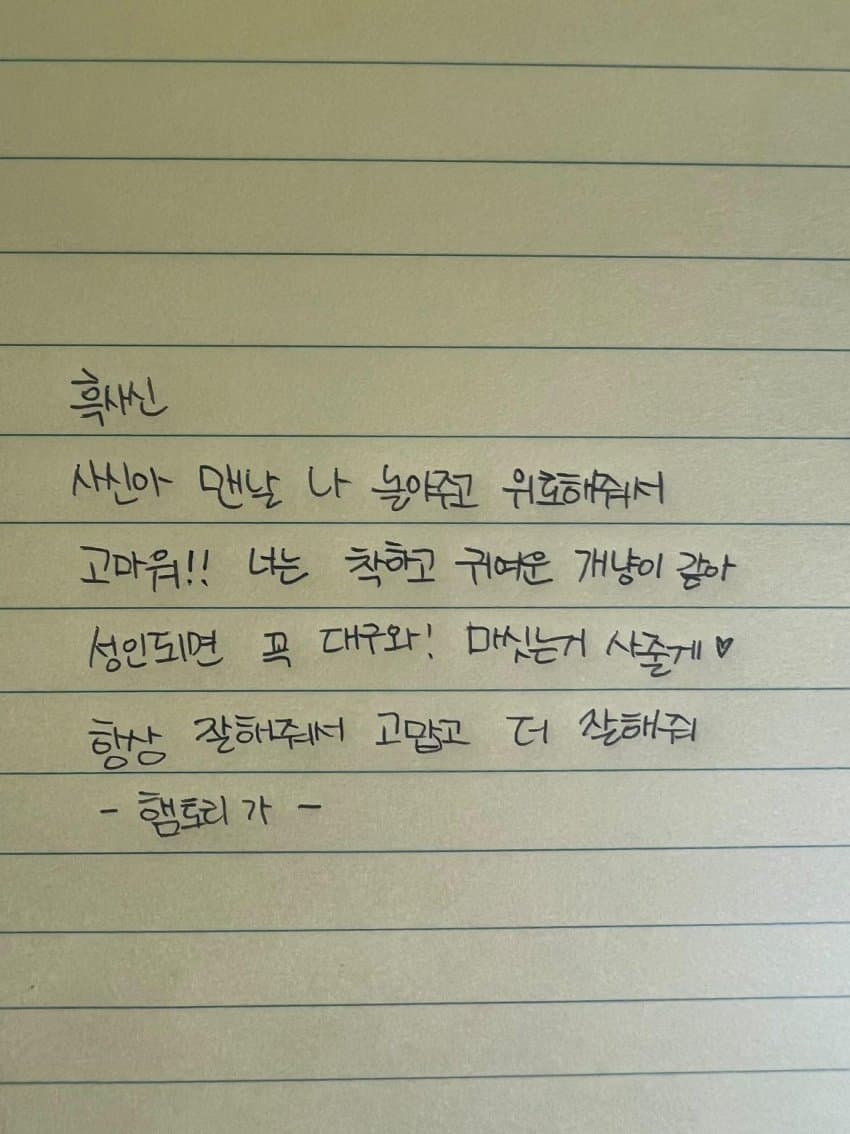 흑사신
사신아 맨날 나 놀아주고 위로해줘서
고마워!! 너는 착하고 귀여운 개냥이 같아
성인되면 꼭 대구와! 매씻는거 사줄게♥
항상 잘해줘서 고맙고 더 잘해줘
- 햄토리가 -